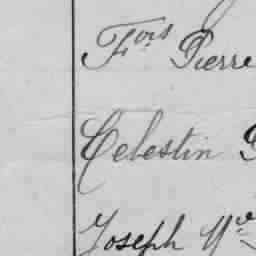 Fois Pierre
Celestin
Joseph Mve